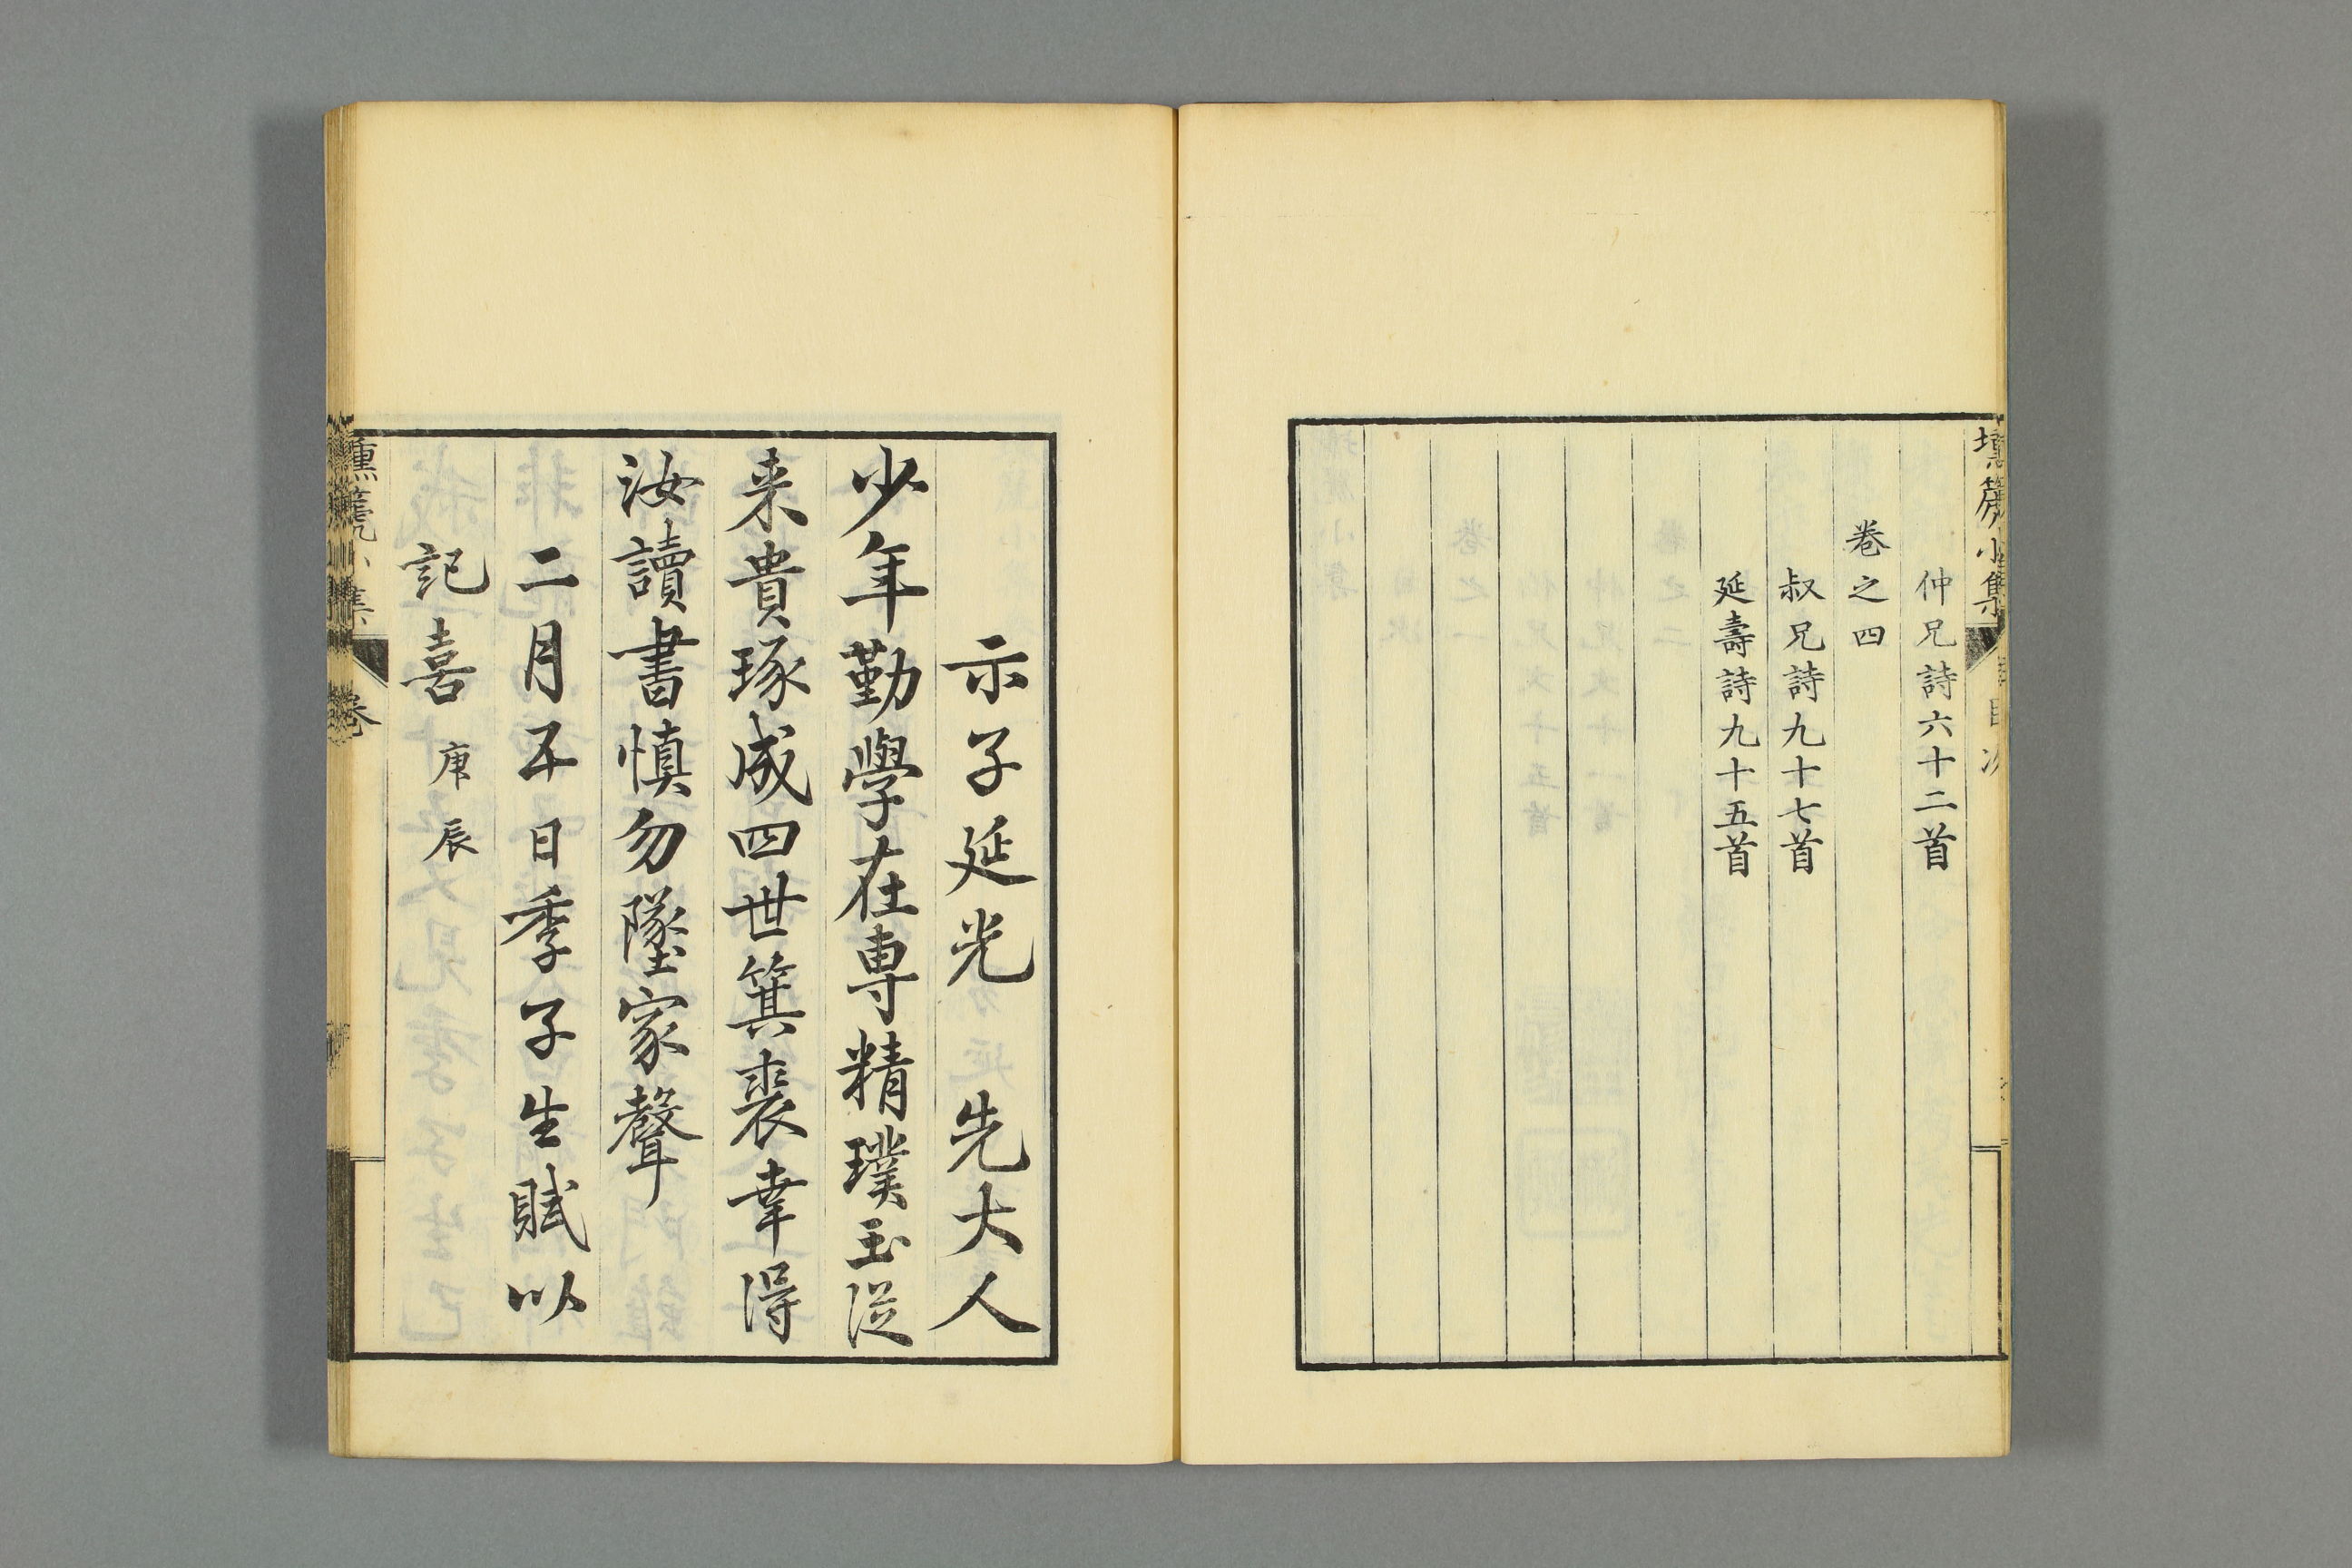 壎篪小集
目次
仲兄詩六十二首
卷之四
叔兄詩九十七首
延壽詩九十五首
示子延光　先大人
少年勤學在専精璞玉從
来貴琢成四世箕裘幸得
汝讀書慎勿墜家聲
二月五日季子生賦以
記喜 庚辰
壎篪小集
卷